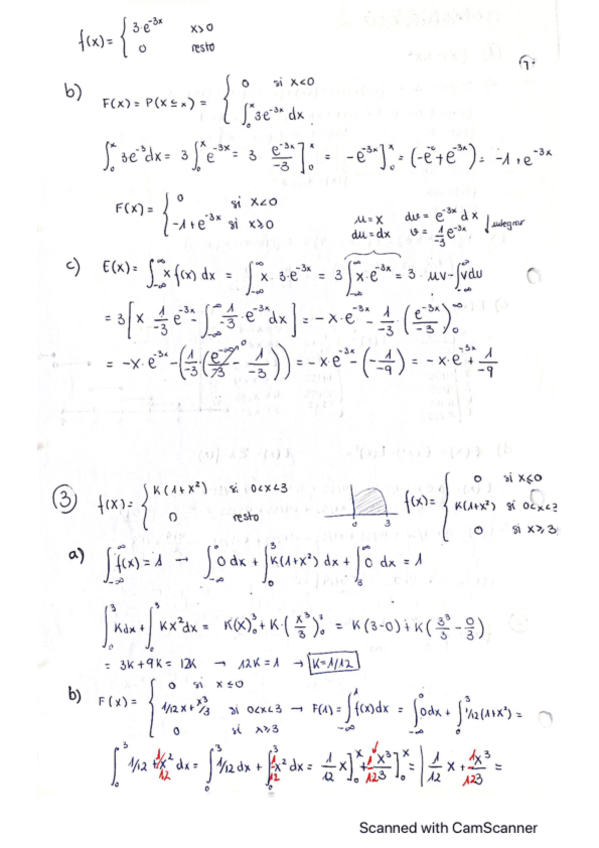 f(x) = { 3·e^-3x   x>0
0   resto
b) F(x) = P(X≤x) = { 0 si x<0
∫₀ˣ 3e^-3x dx
∫₀ˣ 3e^-3 dx = 3 ∫₀ˣ e^-3x = 3 e^-3x/-3 ]₀ˣ = -e^-3x ]₀ˣ = (-e^-0 + e^-3x) = -1 + e^-3x
F(x) = { 0 si x<0
-1 + e^-3x si x≥0
u=x dv = e^-3x dx
du=dx v = 1/-3 e^-3x ↓ integrar
c) E(x) = ∫_-∞^∞ x f(x) dx = ∫_-∞^∞ x 3·e^-3x = 3 ∫_-∞^∞ x·e^-3x = 3· uv - ∫_-∞^∞ v du
= 3 [ x 1/-3 e^-3x - ∫_-∞^∞ 1/-3 · e^-3x dx ] = -x·e^-3x - 1/-3 · (e^-3x/-3)₀^∞
= -x·e^-3x - (1/-3 (e^-∞/-3 ⁰ - 1/-3)) = -x e^-3x - (-1/-9) = -x·e^-3x + 1/-9
③ f(x) = { K(1+x²) si 0<x<3
0   resto
0 3
f(x) = { 0 si x≤0
K(1+x²) si 0<x<3
0 si x≥3
a) ∫_-∞^∞ f(x) = 1 → ∫_-∞^0 0 dx + ∫₀³ K(1+x²) dx + ∫₃^∞ 0 dx = 1
∫₀³ K dx + ∫₀³ Kx² dx = K(x)₀³ + K·(x³/3)₀³ = K(3-0) + K(3³/3 - 0/3)
= 3K + 9K = 12K → 12K = 1 → K = 1/12
b) F(x) = { 0 si x≤0
1/12 x + x³/3 si 0<x<3
0 si x≥3
→ F(1) = ∫_-∞^1 f(x) dx = ∫_-∞^0 0 dx + ∫₀³ 1/12 (1+x²) =
∫₀³ 1/12 + 1/12 x² dx = ∫₀³ 1/12 dx + ∫₀³ 1/12 x² dx = 1/12 x ]₀ˣ + 1/12 x³/3 ]₀ˣ = | 1/12 x + 1/12 x³/3 =
Scanned with CamScanner